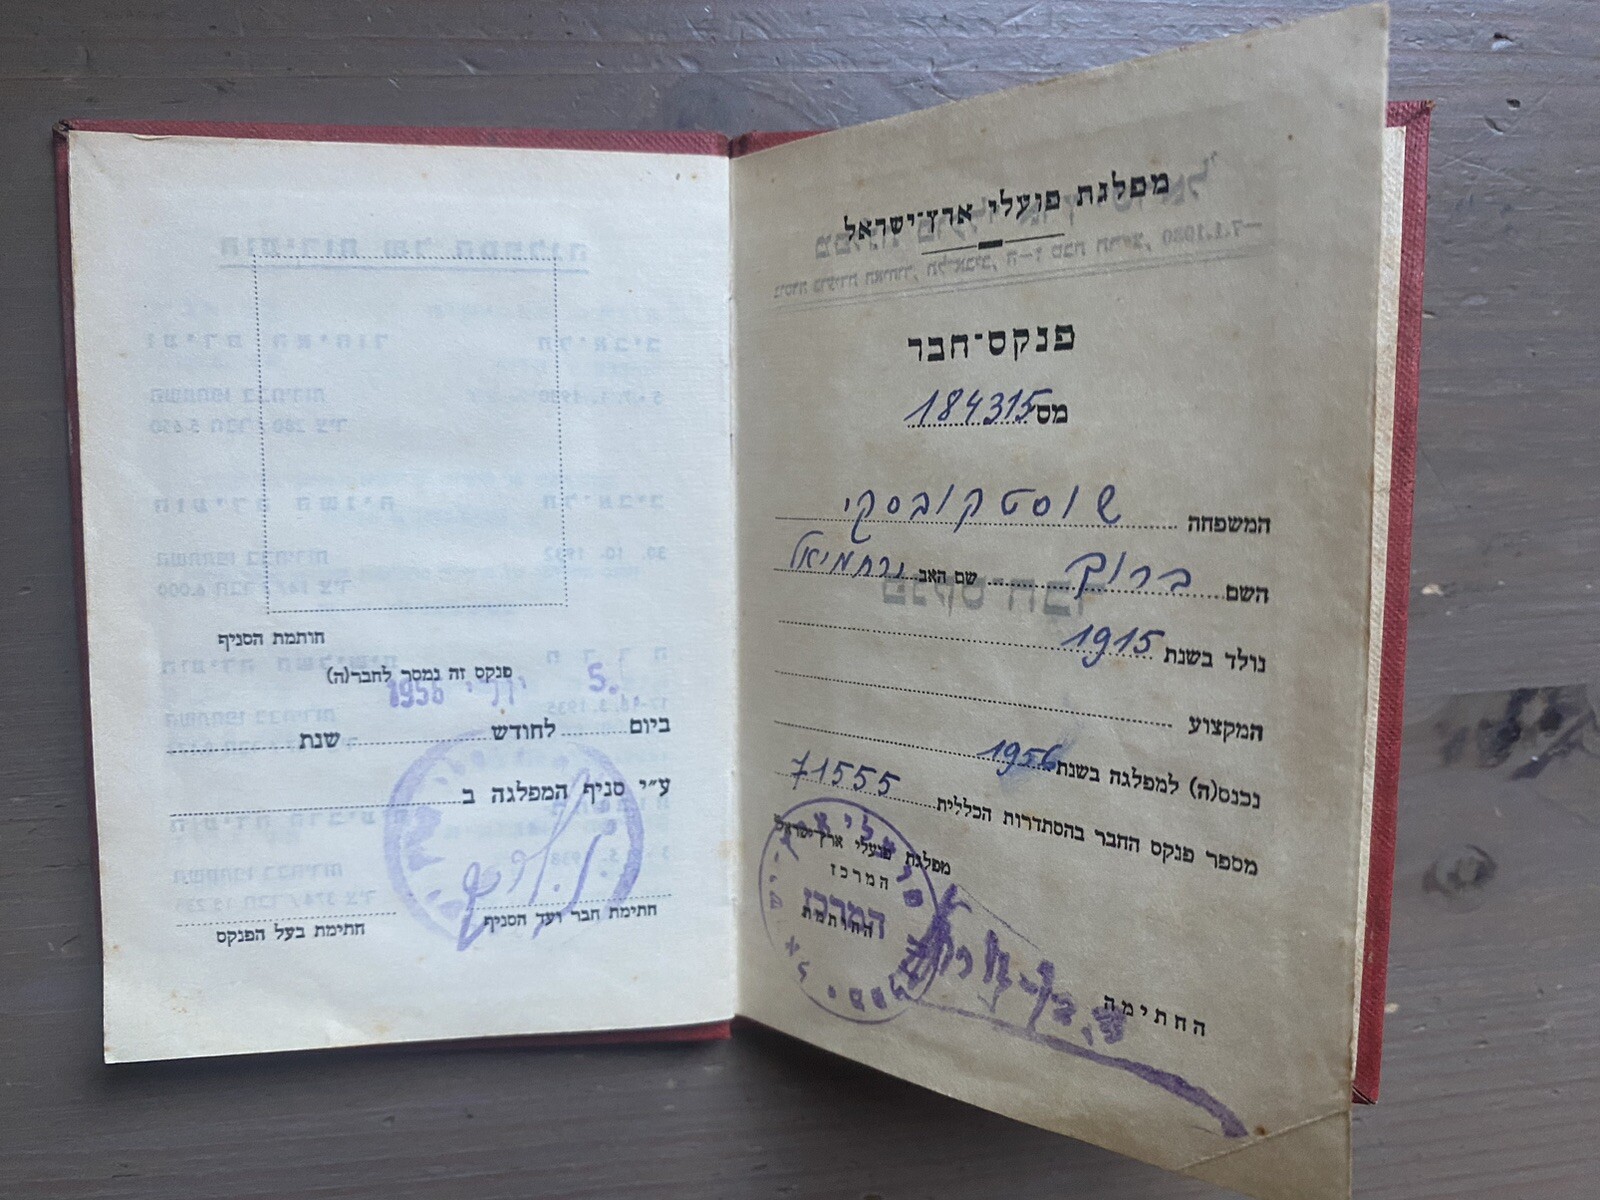 מפלגת פועלי ארץ־ישראל
פנקס־חבר
מס׳ 184315
המשפחה שוסטקובסקי
השם ברוך שם האב ירחמיאל
נולד בשנת 1915
המקצוע
נכנס(ה) למפלגה בשנת 1956
מספר פנקס החבר בהסתדרות הכללית 71555
מפלגת פועלי ארץ־ישראל
המרכז
המרכז
החותמת
החתימה
חותמת הסניף
פנקס זה נמסר לחבר(ה)
5. יולי 1956
ביום לחודש שנת
ע״י סניף המפלגה ב
חתימת חבר ועד הסניף
חתימת בעל הפנקס